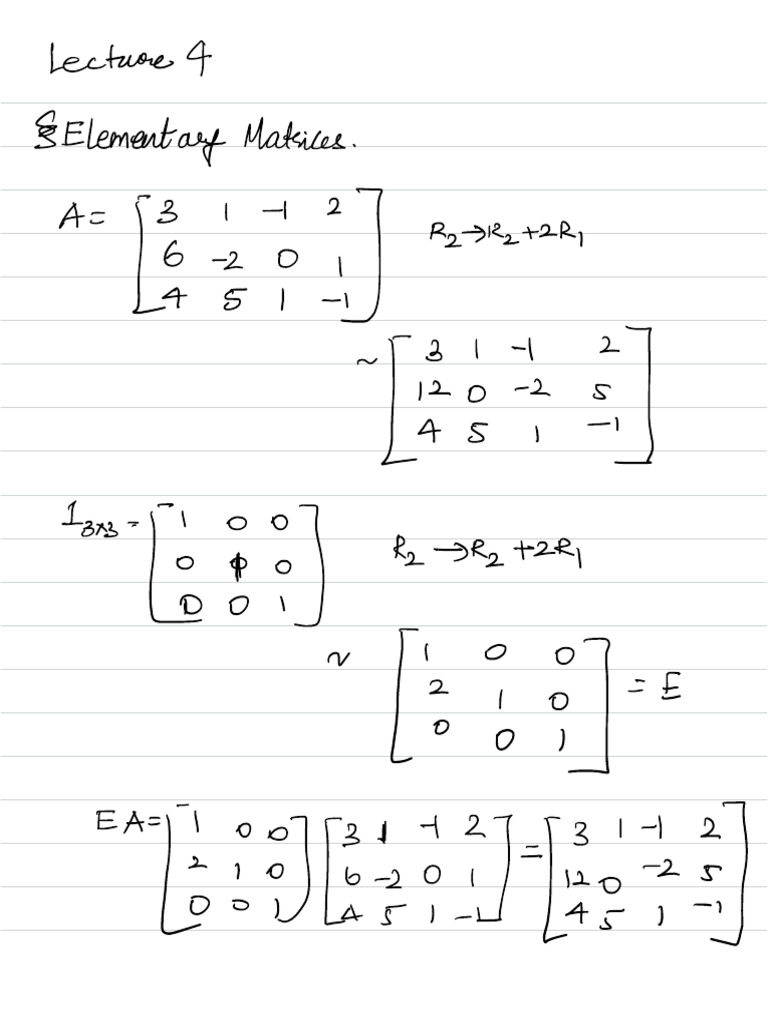 Lecture 4
§ Elementary Matrices.
A = [3 1 -1 2
6 -2 0 1
4 5 1 -1] R₂→R₂+2R₁
~ [3 1 -1 2
12 0 -2 5
4 5 1 -1]
I₃ₓ₃ = [1 0 0
0 1 0
0 0 1] R₂→R₂+2R₁
~ [1 0 0
2 1 0
0 0 1] = E
EA = [1 0 0 [3 1 -1 2 = [3 1 -1 2
2 1 0 6 -2 0 1 12 0 -2 5
0 0 1] 4 5 1 -1] 4 5 1 -1]